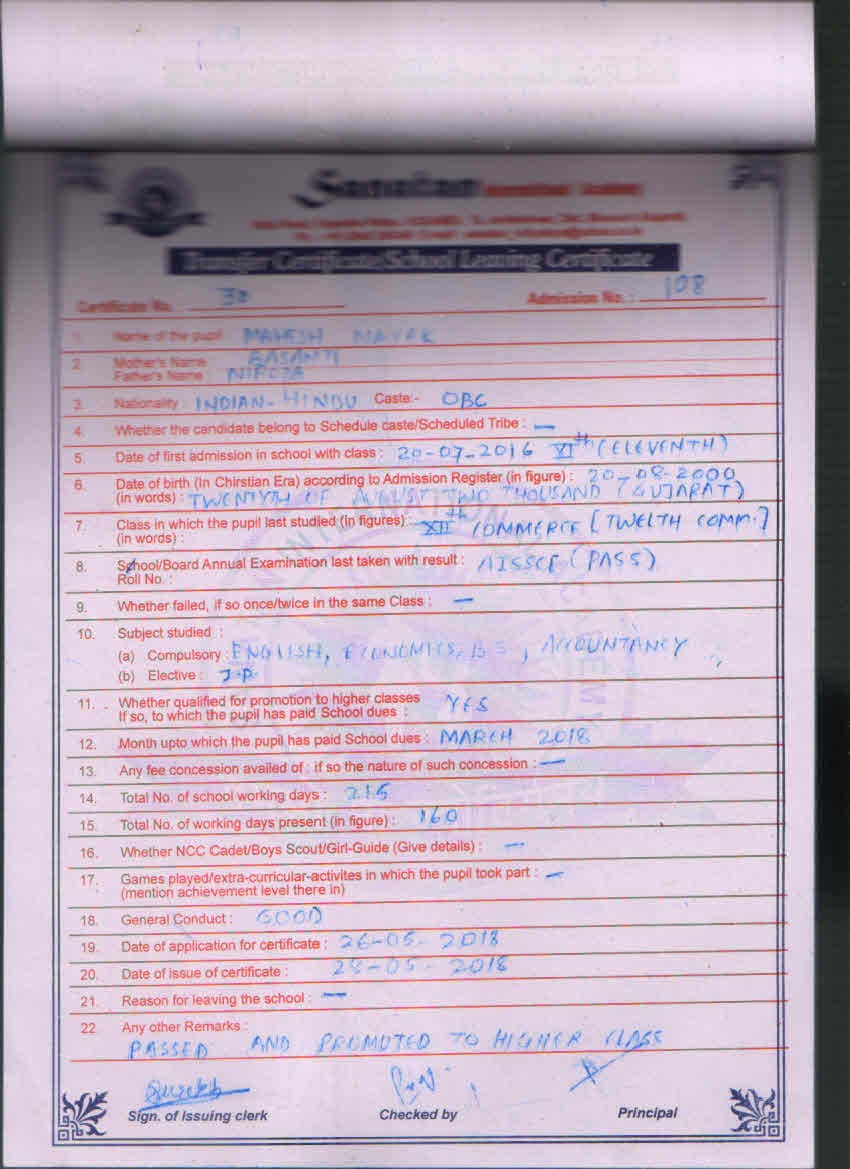 Sanatan
Transfer Certificate/School Leaving Certificate
Certificate No. : 30 Admission No. : 108
1. Name of the pupil MAHESH NAYAK
2. Mother's Name BASANTI
Father's Name
3. Nationality : INDIAN-HINDU Caste:- OBC
4. Whether the candidate belong to Schedule caste/Scheduled Tribe : —
5. Date of first admission in school with class : 20-07-2016 XIth (ELEVENTH)
6. Date of birth (In Chirstian Era) according to Admission Register (in figure) : 20-08-2000
(in words) : TWENTYTH OF AUGUST TWO THOUSAND (GUJARAT)
7. Class in which the pupil last studied (in figures) : XIIth COMMERCE [TWELTH COMM.]
(in words) :
8. School/Board Annual Examination last taken with result : AISSCE (PASS)
Roll No. :
9. Whether failed, if so once/twice in the same Class : —
10. Subject studied :
(a) Compulsory : ENGLISH, ECONOMICS, B S, ACCOUNTANCY
(b) Elective : I.P.
11. Whether qualified for promotion to higher classes YES
If so, to which the pupil has paid School dues :
12. Month upto which the pupil has paid School dues : MARCH 2018
13. Any fee concession availed of : if so the nature of such concession : —
14. Total No. of school working days : 215
15. Total No. of working days present (in figure) : 160
16. Whether NCC Cadet/Boys Scout/Girl-Guide (Give details) : —
17. Games played/extra-curricular-activites in which the pupil took part : —
(mention achievement level there in)
18. General Conduct : GOOD
19. Date of application for certificate : 26-05-2018
20. Date of issue of certificate : 28-05-2018
21. Reason for leaving the school : —
22 Any other Remarks :
PASSED AND PROMOTED TO HIGHER CLASS
Sign. of Issuing clerk Checked by Principal